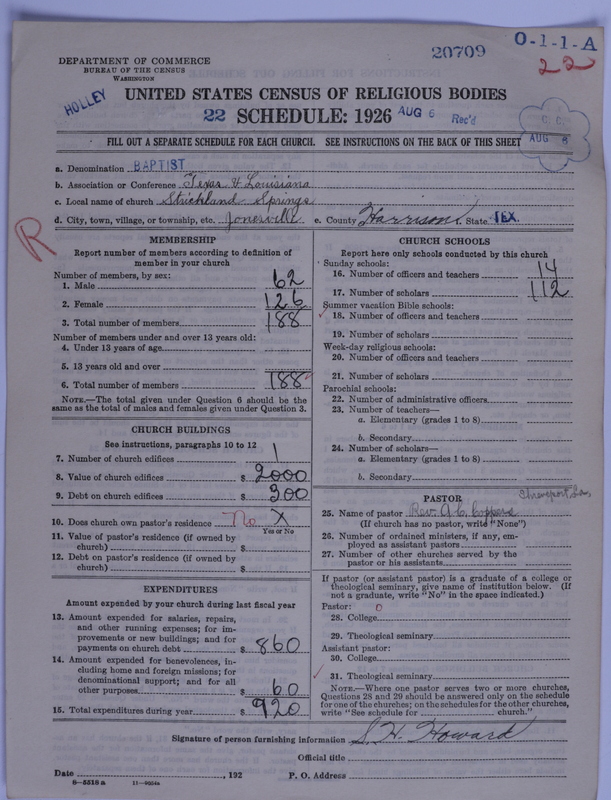 20709
O-1-1-A
22
DEPARTMENT OF COMMERCE
BUREAU OF THE CENSUS
WASHINGTON
UNITED STATES CENSUS OF RELIGIOUS BODIES
HOLLEY
22 SCHEDULE: 1926 AUG 6 Rec'd
FILL OUT A SEPARATE SCHEDULE FOR EACH CHURCH. SEE INSTRUCTIONS ON THE BACK OF THIS SHEET
AUG 8
a. Denomination BAPTIST
b. Association or Conference Texas & Louisiana
c. Local name of church Strickland Springs
d. City, town, village, or township, etc. Jonesville e. County Harrison f. State TEX.
R
MEMBERSHIP
Report number of members according to definition of
member in your church
Number of members, by sex:
1. Male 62
2. Female 126
3. Total number of members 188
Number of members under and over 13 years old:
4. Under 13 years of age
5. 13 years old and over
6. Total number of members 188
NOTE.—The total given under Question 6 should be the
same as the total of males and females given under Question 3.
CHURCH BUILDINGS
See instructions, paragraphs 10 to 12
7. Number of church edifices 1
8. Value of church edifices $ 2000
9. Debt on church edifices $ 300
10. Does church own pastor's residence No X
Yes or No
11. Value of pastor's residence (if owned by
church) $
12. Debt on pastor's residence (if owned by
church) $
EXPENDITURES
Amount expended by your church during last fiscal year
13. Amount expended for salaries, repairs,
and other running expenses; for im-
provements or new buildings; and for
payments on church debt $ 860
14. Amount expended for benevolences, in-
cluding home and foreign missions; for
denominational support; and for all
other purposes $ 60
15. Total expenditures during year $ 920
CHURCH SCHOOLS
Report here only schools conducted by this church
Sunday schools:
16. Number of officers and teachers 14
17. Number of scholars 112
Summer vacation Bible schools:
18. Number of officers and teachers
19. Number of scholars
Week-day religious schools:
20. Number of officers and teachers
21. Number of scholars
Parochial schools:
22. Number of administrative officers
23. Number of teachers—
a. Elementary (grades 1 to 8)
b. Secondary
24. Number of scholars—
a. Elementary (grades 1 to 8)
b. Secondary
PASTOR Shreveport, La.
25. Name of pastor Rev. A. C.
(If church has no pastor, write "None")
26. Number of ordained ministers, if any, em-
ployed as assistant pastors
27. Number of other churches served by the
pastor or his assistants
If pastor (or assistant pastor) is a graduate of a college or
theological seminary, give name of institution below. (If
not a graduate, write "No" in the space indicated.)
Pastor: 0
28. College
29. Theological seminary
Assistant pastor:
30. College
31. Theological seminary
NOTE.—Where one pastor serves two or more churches,
Questions 28 and 29 should be answered only on the schedule
for one of the churches; on the schedules for the other churches,
write "See schedule for church."
Signature of person furnishing information S. H. Howard
Official title
Date , 192 P. O. Address
8-5518 a